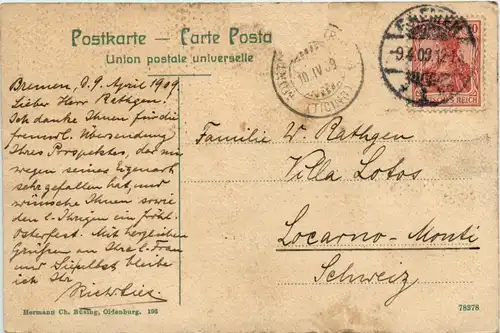 Postkarte — Carte Posta
Union postale universelle
Bremen, d. 9. April 1909
Lieber Herr Rathgen!
Ich danke Ihnen für die
freundl. Übersendung
Ihres Prospektes, der mir
wegen seines Eigenart
sehr gefallen hat, und
wünsche Ihnen sowie
den l. Ihrigen ein fröhl.
Osterfest. Mit herzlichen
Grüßen an Ihre l. Frau
und Sie selbst bleibe
ich Ihr
BREMEN
9.4.09.12-1
10.IV.09
(TICINO)
10
REICH
Familie W. Rathgen
Villa Lotos
Locarno-Monti
Schweiz
Hermann Ch. Büsing, Oldenburg. 193
78378